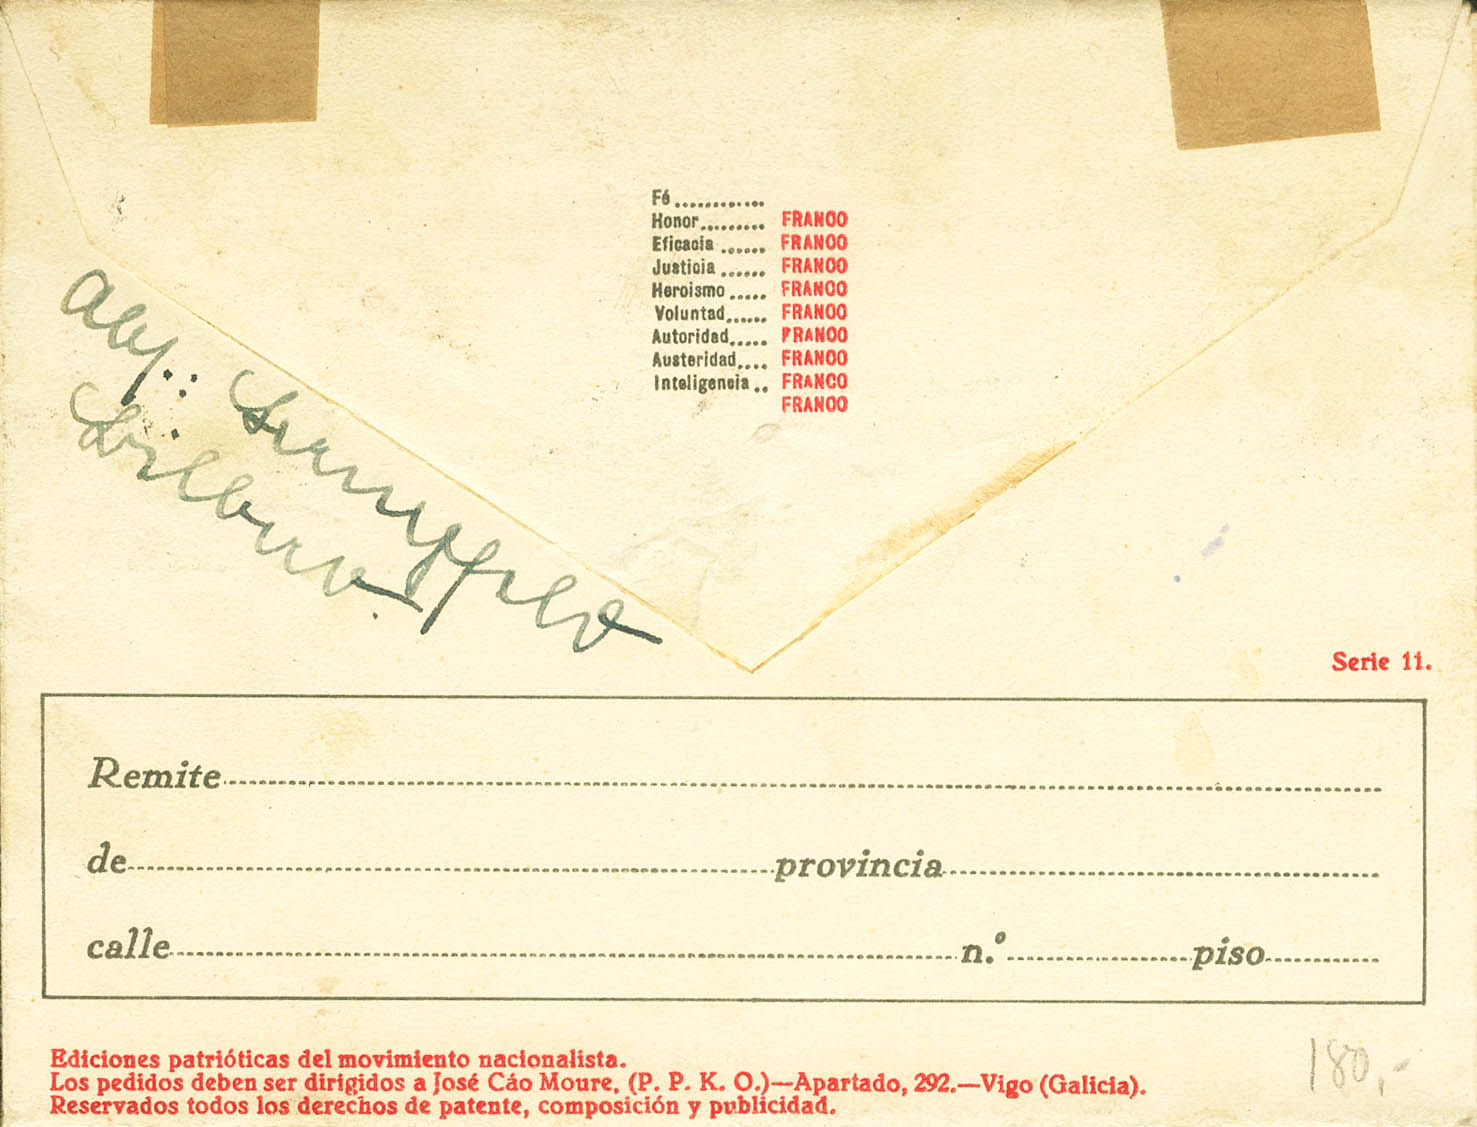 Fé............
Honor......... FRANCO
Eficacia ...... FRANCO
Justicia ...... FRANCO
Heroismo ..... FRANCO
Voluntad...... FRANCO
Autoridad..... FRANCO
Austeridad.... FRANCO
Inteligencia .. FRANCO
FRANCO
Serie 11.
Remite
de provincia
calle n.º piso
Ediciones patrióticas del movimiento nacionalista.
Los pedidos deben ser dirigidos a José Cáo Moure. (P. P. K. O.)—Apartado, 292.—Vigo (Galicia).
Reservados todos los derechos de patente, composición y publicidad.
180,-